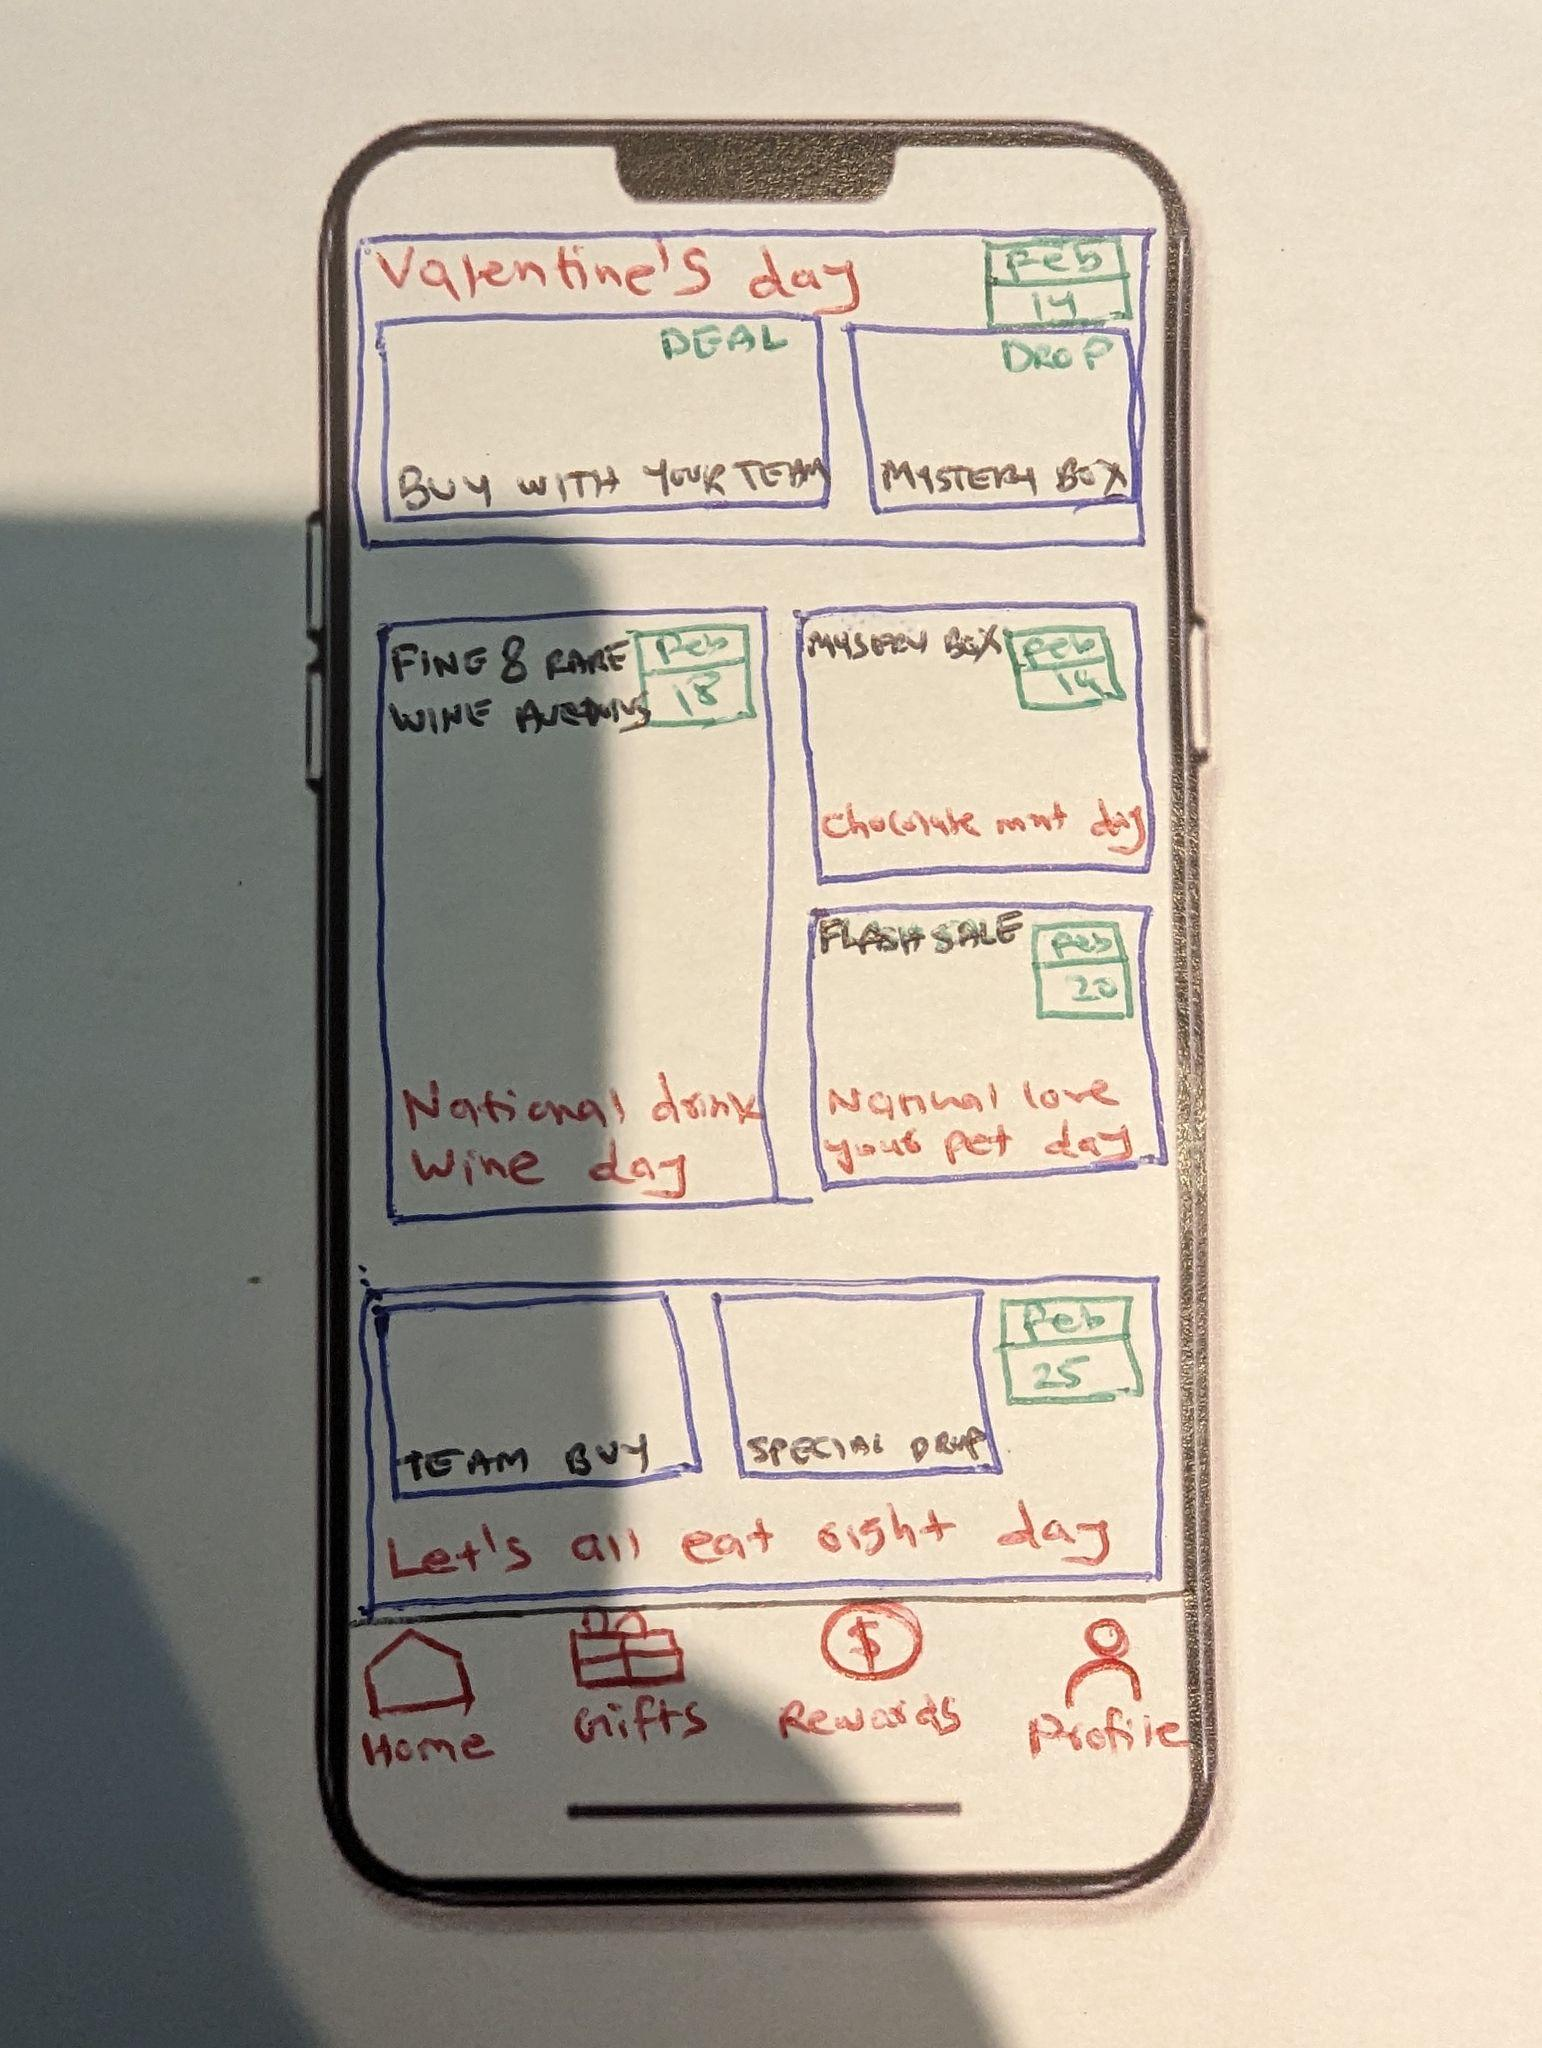 Valentine's day
Feb
14
DEAL
BUY WITH YOUR TEAM
DROP
MYSTERY BOX
FINE & RARE
WINE AUCTIONS
Feb
18
National drink
wine day
MYSERY BOX
Feb
19
Chocolate mint day
FLASH SALE
Feb
20
National love
your pet day
TEAM BUY
SPECIAL DROP
Feb
25
Let's all eat right day
Home
Gifts
Rewards
Profile